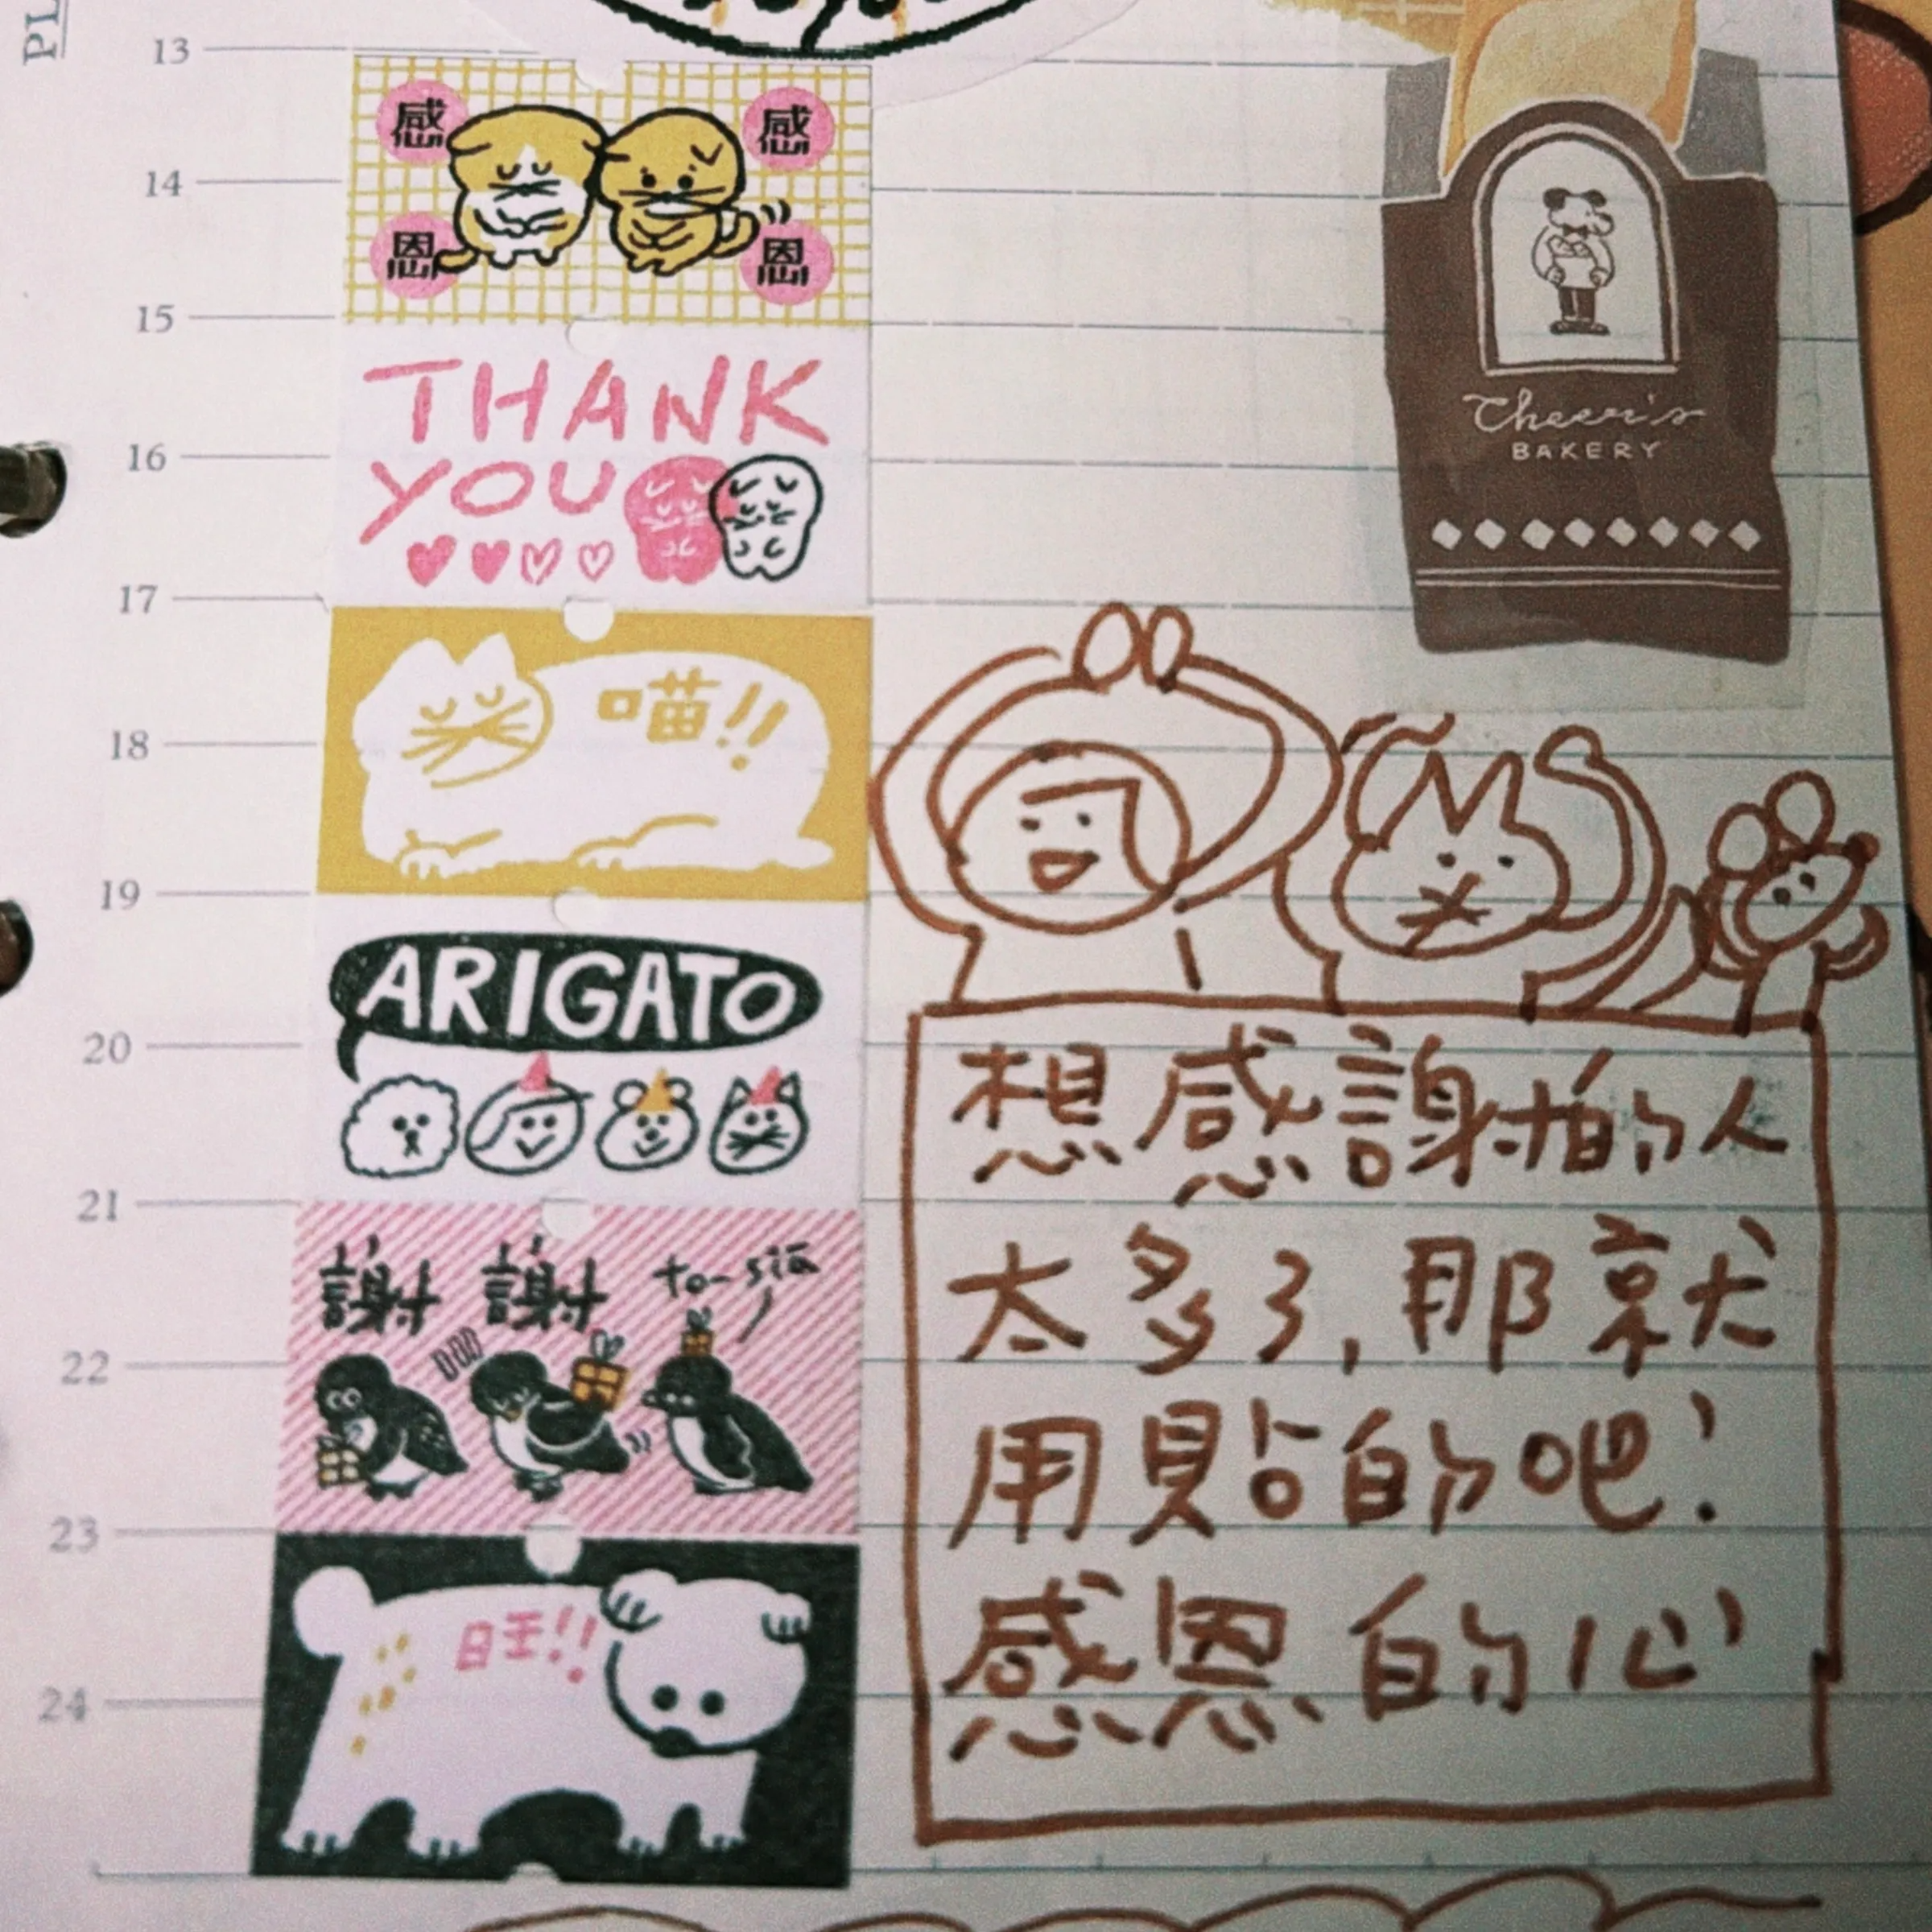 PL
13
14
15
16
17
18
19
20
21
22
23
24
感 感
恩 恩
THANK
YOU
喵!!
ARIGATO
謝 謝 to-siā
旺!!
Cheer's
BAKERY
想感謝的人
太多了,那就
用貼的吧!
感恩的心